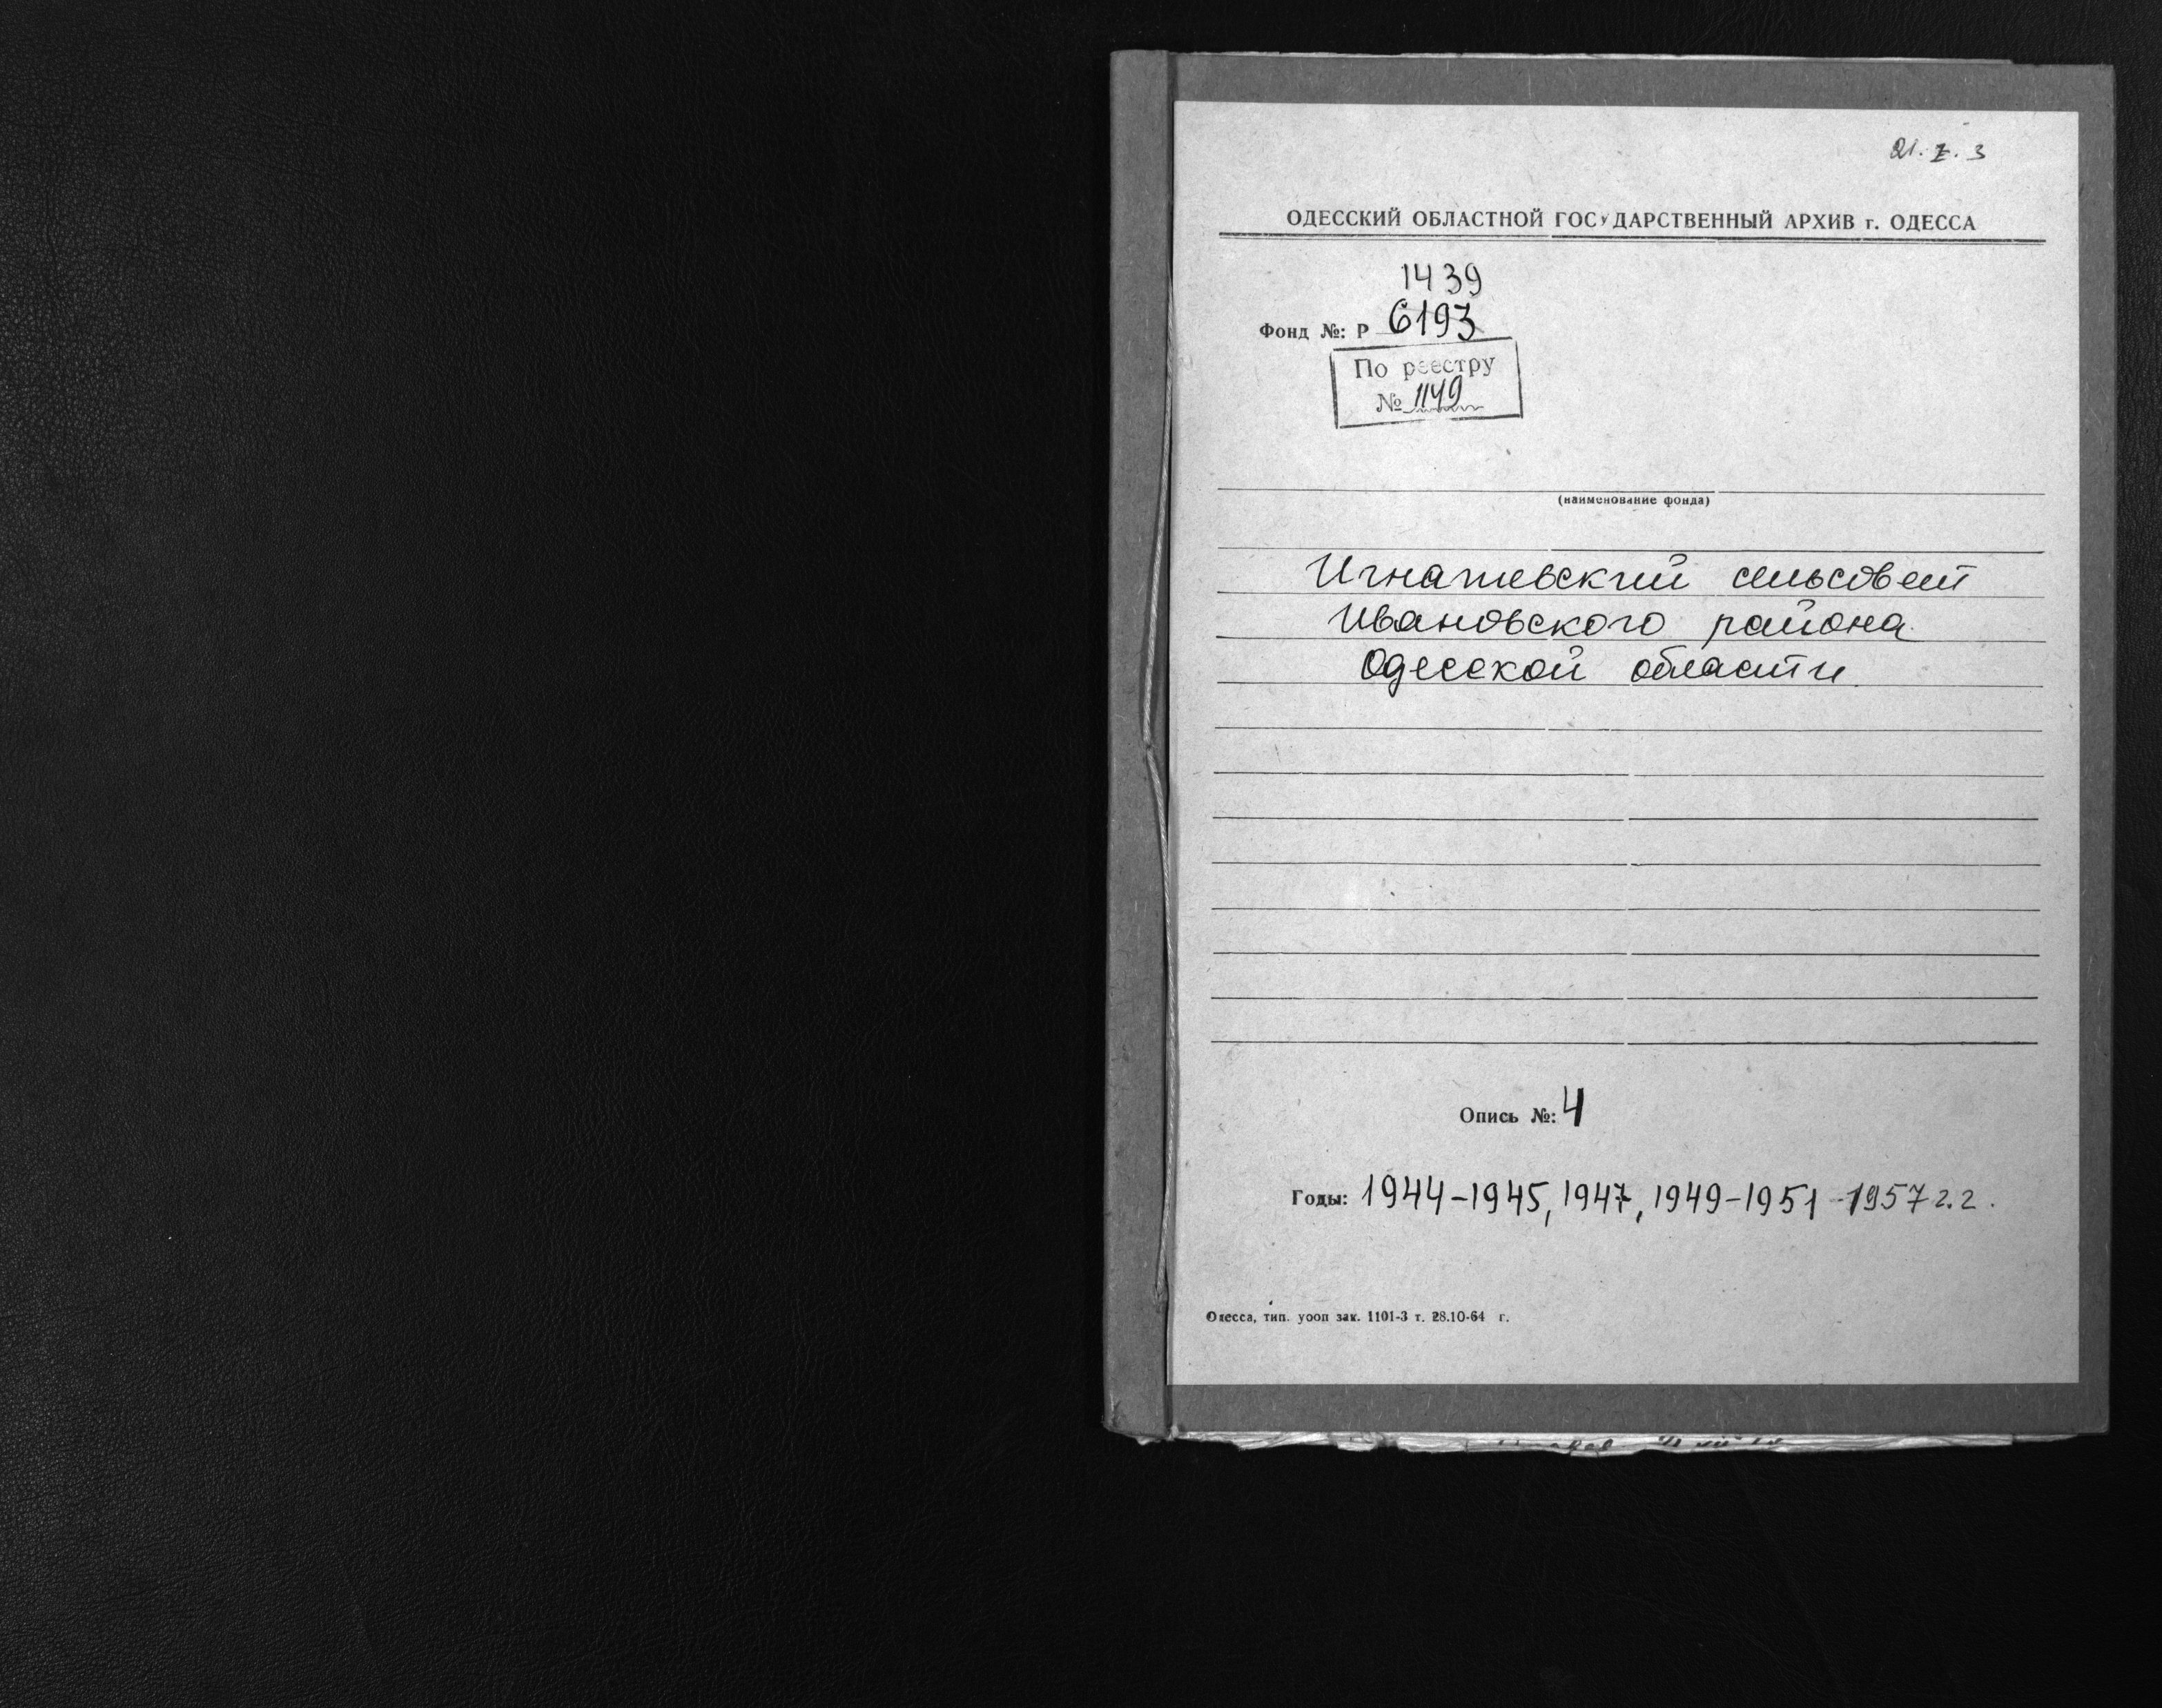 21. I. 3
ОДЕССКИЙ ОБЛАСТНОЙ ГОСУДАРСТВЕННЫЙ АРХИВ г. ОДЕССА
1439
Фонд №: Р 6193
По реестру
№ 1149
(наименование фонда)
Игнатовский сельсовет
Ивановского района
Одесской области
Опись №: 4
Годы: 1944-1945, 1947, 1949-1951-1957 г.г.
Одесса, тип. уооп зак. 1101-3 т. 28.10-64 г.